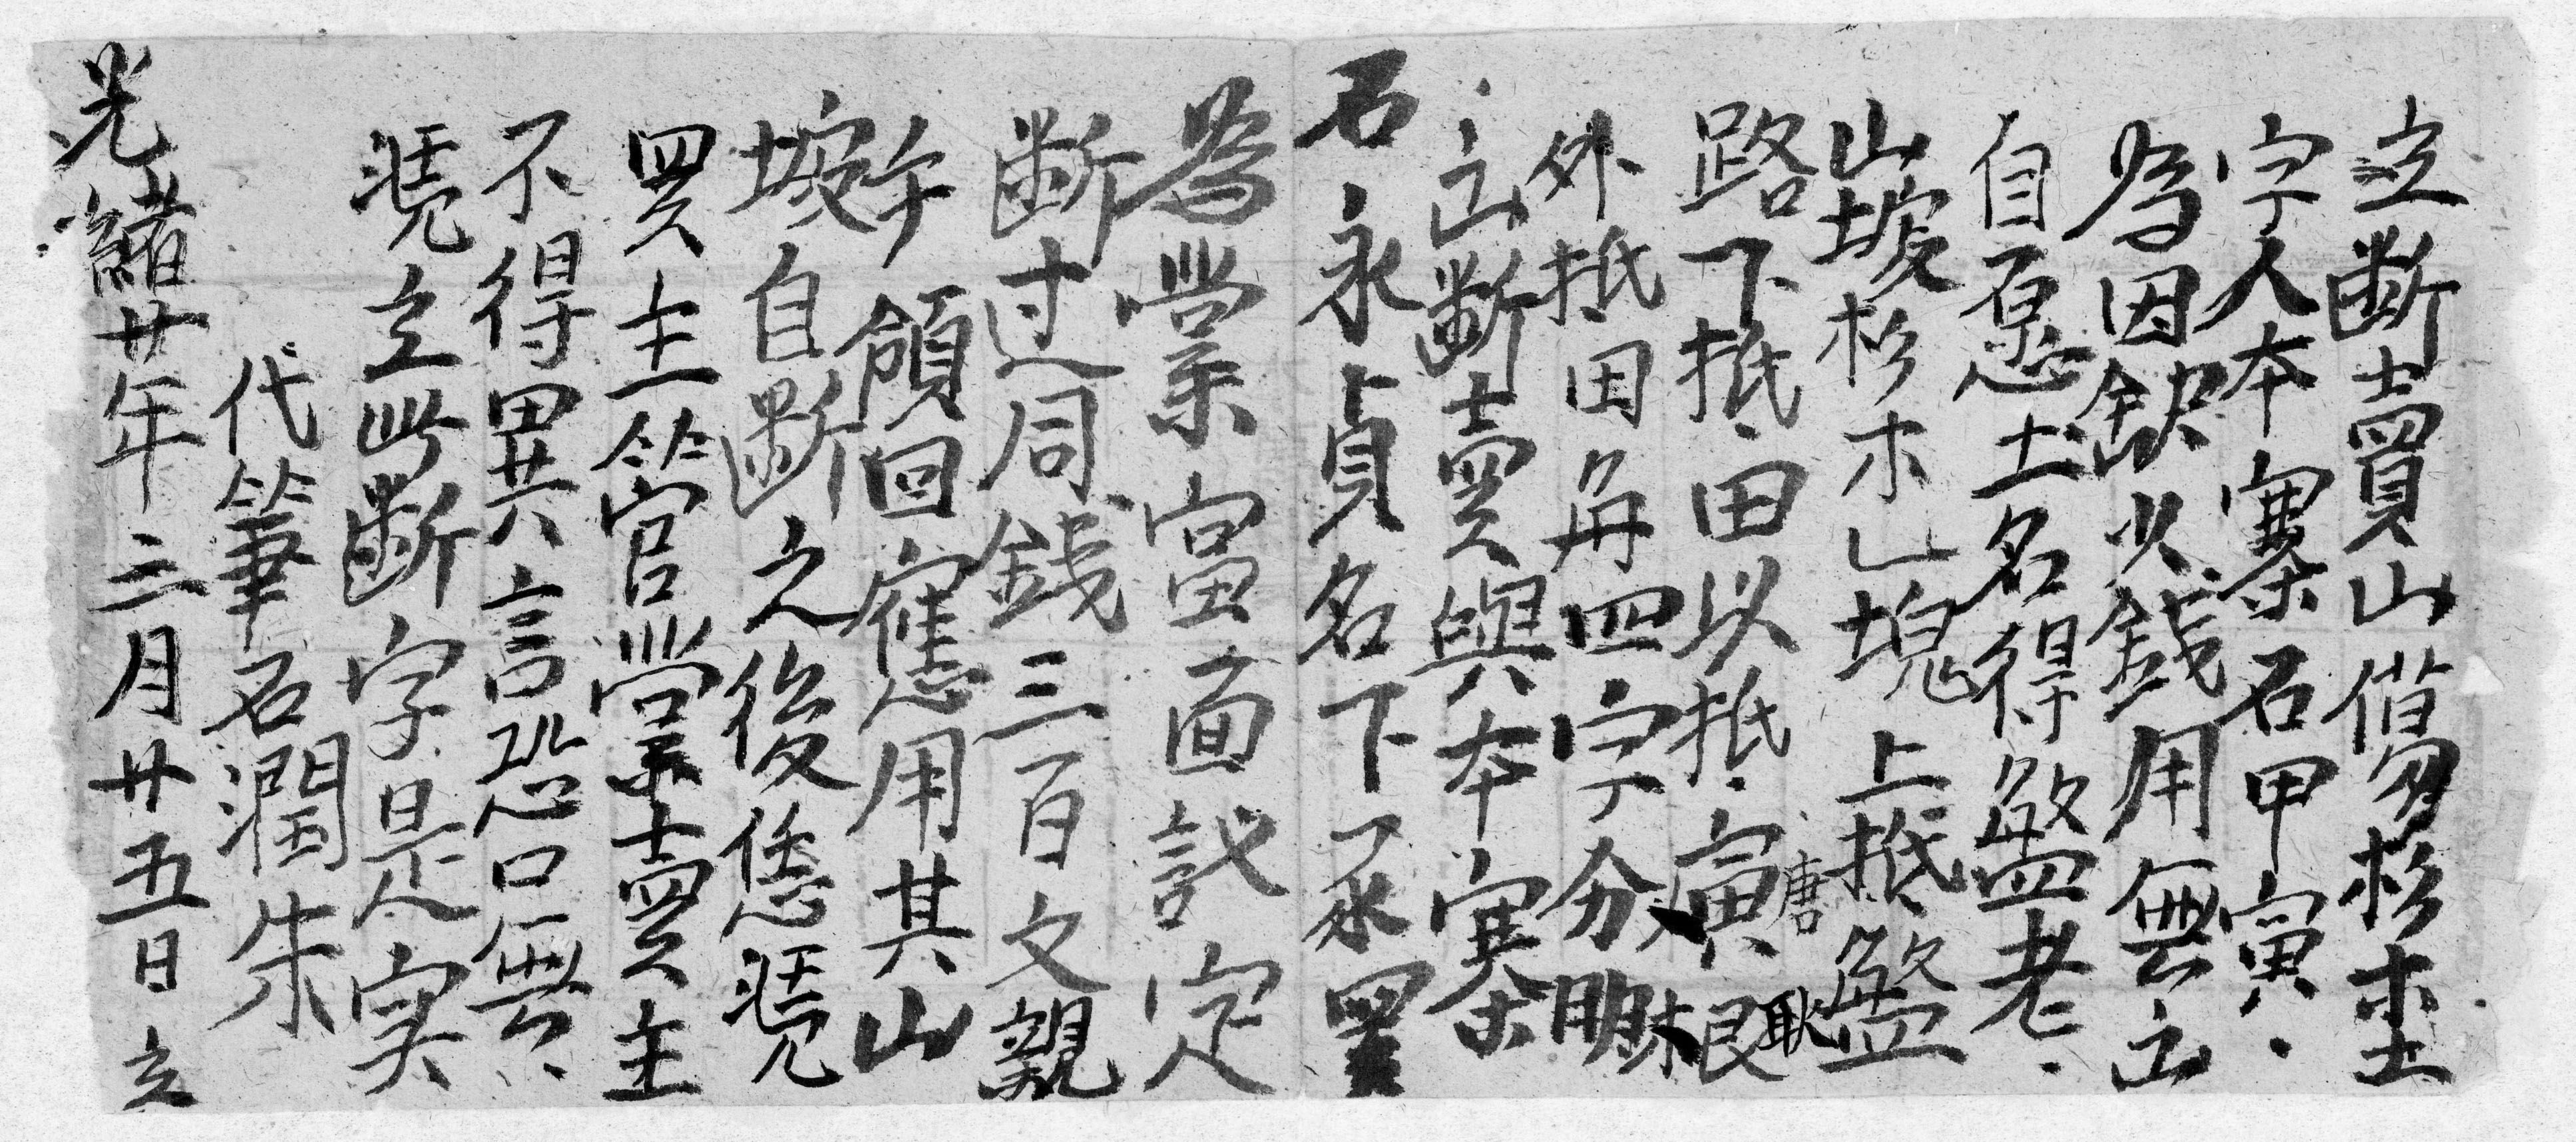 立断賣山塲杉木
字人本寨石甲寅
為因缺火錢用無出
自愿土名得盤老
山坡杉木乚塊上抵盤
路下抵田以抵唐寅
外抵田角四字分明
出断賣與本寨
石永貞名下承買
為業當面議定
断过同錢三百文親
手領回應用其山
坡自断之後恁凭
買主管業賣主
不得異言恐口無
凭立此断字是实
代筆石潤朱
光緒廿年三月廿五日立